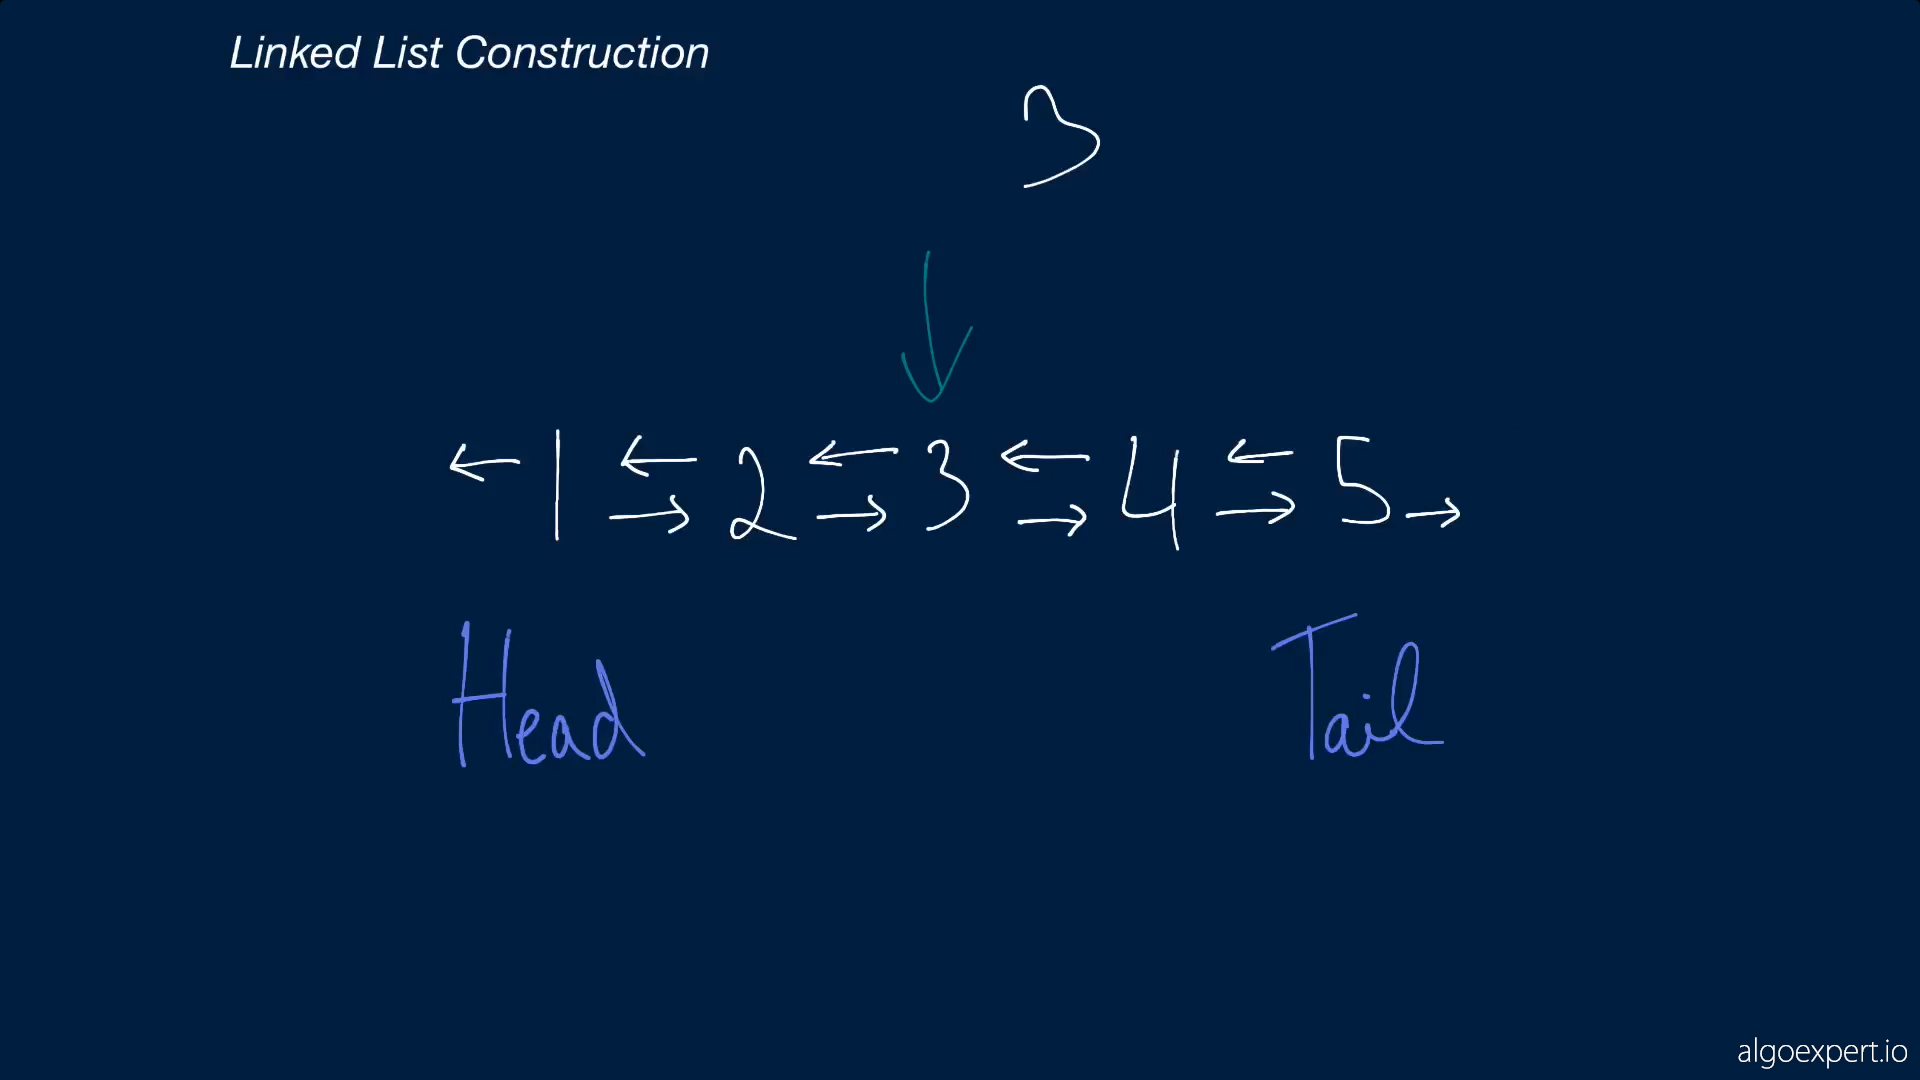 Linked List Construction
3
← 1 ← → 2 ← → 3 ← → 4 ← → 5 →
Head Tail
algoexpert.io